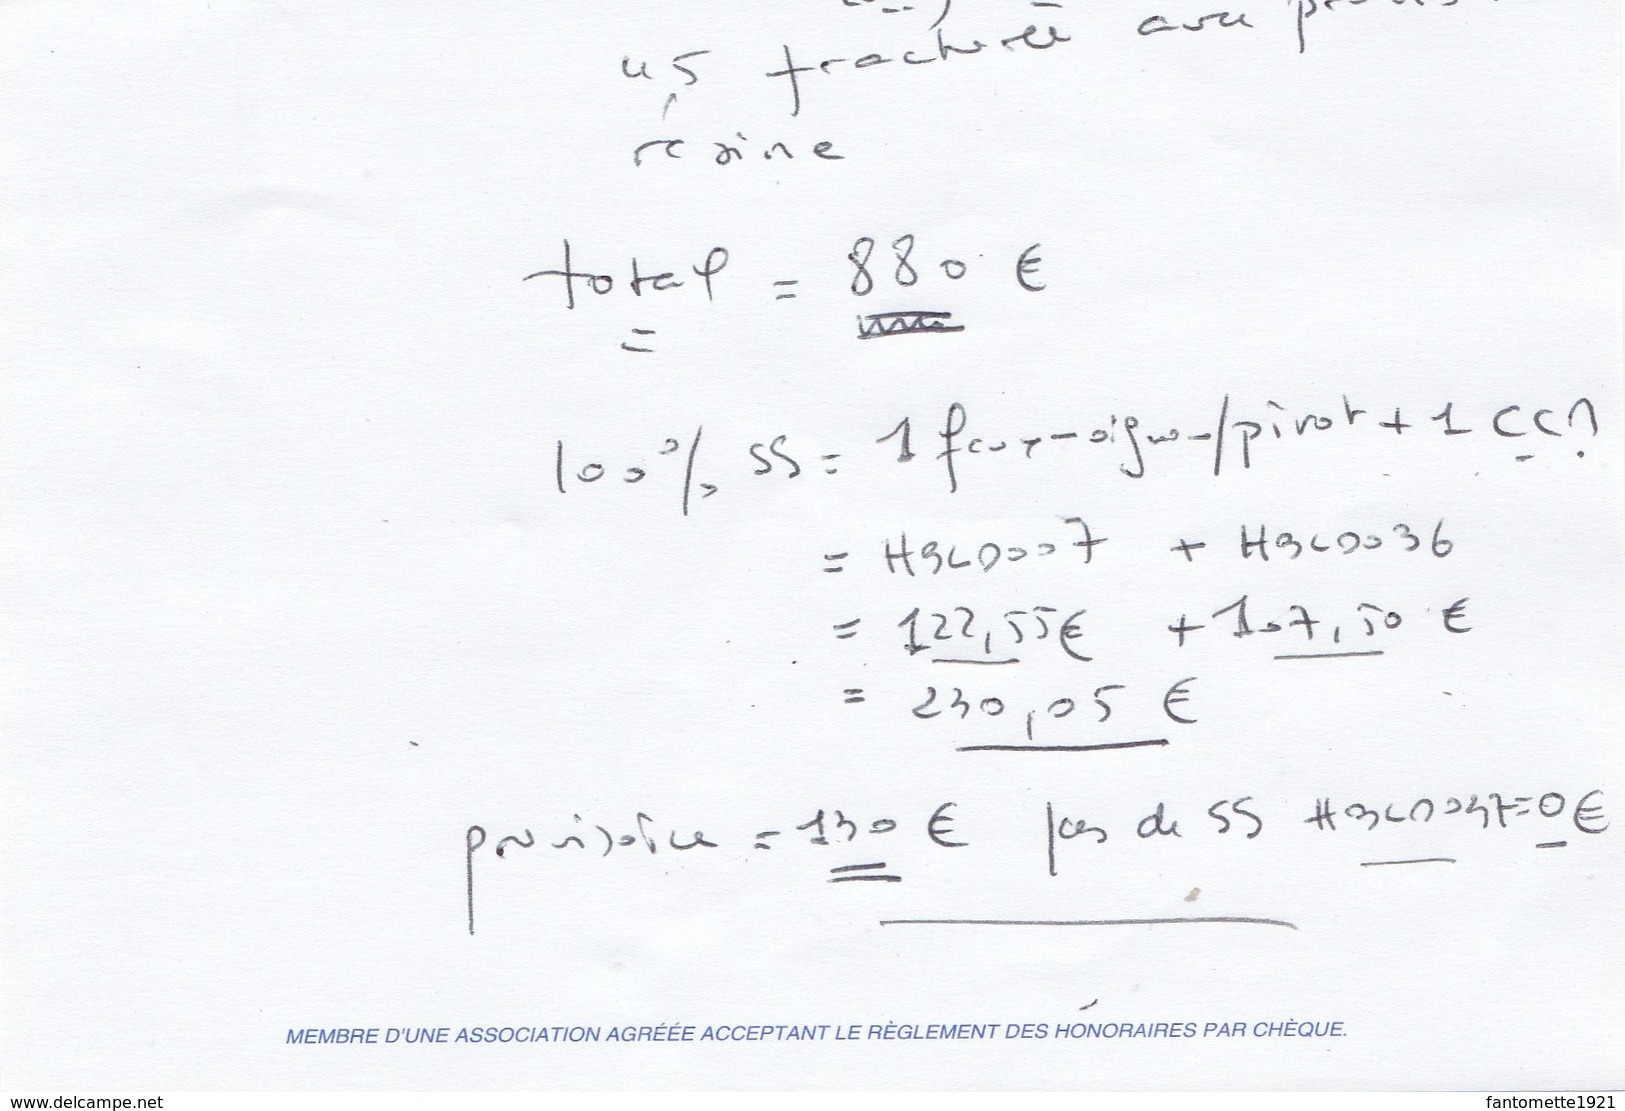 45 fracturée avec
résine
total = 880 €
100% SS = 1 faux-moignon/pivot + 1 CCM
= HBLD007 + HBLD036
= 122,55€ + 107,50 €
= 230,05 €
provisoire = 130 € pas de SS HBLD037=0€
MEMBRE D'UNE ASSOCIATION AGRÉÉE ACCEPTANT LE RÈGLEMENT DES HONORAIRES PAR CHÈQUE.
www.delcampe.net
fantomette1921